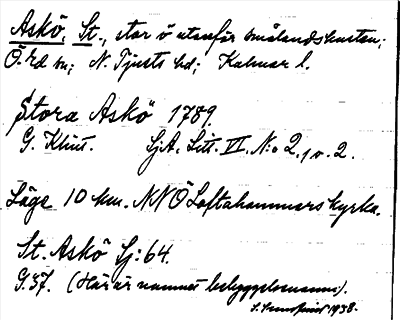 Askö, St., stor ö utanför smålandskusten;
Ö. rd sn; N. Tjusts hd; Kalmar l.
Stora Askö 1789.
G. Klint. SjA, Litt. VI. N:o 2, 1 o. 2.
Läge 10 km. NNÖ Loftahammars kyrka.
St. Askö Sj: 64.
G. 37. (Här är namnet bebyggelsenamn).
1938.